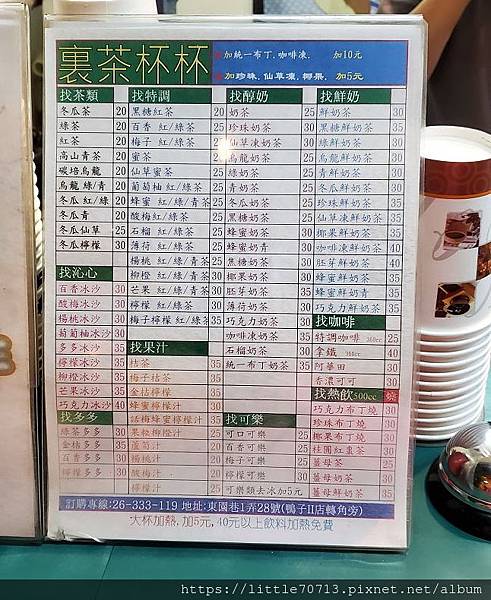 裏茶杯杯
加統一布丁,咖啡凍, 加10元
加珍珠,仙草凍,椰果, 加5元
找茶類
冬瓜茶 20
綠茶 20
紅茶 20
高山青茶 20
碳培烏龍 20
烏龍 綠/青 20
冬瓜 紅/綠 20
冬瓜青 20
冬瓜仙草
冬瓜檸檬 30
找沁心
百香冰沙
酸梅冰沙 30
楊桃冰沙 30
葡萄柚冰沙 30
多多冰沙 35
檸檬冰沙 35
柳橙冰沙 35
芒果冰沙 35
巧克力冰沙 40
找多多
綠茶多多 30
金桔多多 35
百香多多 30
檸檬多多
找特調
黑糖紅茶 20
百香 紅/綠茶
梅子 紅/綠茶
蜜茶
仙草蜜茶
葡萄柚 紅/綠茶
蜂蜜 紅/綠/青茶
酸梅紅/綠茶
石榴 紅/綠茶
薄荷 紅/綠茶
楊桃 紅/綠/青茶
柳橙 紅/綠/青茶
芒果 紅/綠/青茶
檸檬 紅/綠茶
梅子檸檬 紅/綠茶
找果汁
桔茶 35
梅子桔茶 35
金桔檸檬 35
蜂蜜檸檬汁
話梅蜂蜜檸檬汁 35
果粒柳橙汁
蘆筍汁
楊桃汁
酸梅汁
檸檬汁
找醇奶
奶茶 25
珍珠奶茶 30
仙草凍奶茶 30
烏龍奶茶
綠奶茶
青奶茶
冬瓜奶茶
黑糖奶茶
蜂蜜奶茶
蜂蜜奶青
焦糖奶茶
椰果奶茶
胚芽奶茶
薄荷奶茶
巧克力奶茶 30
咖啡凍奶茶 35
石榴奶茶 30
統一布丁奶茶 35
找可樂
可口可樂
百香可樂
梅子可樂
檸檬可樂
可樂類去冰加5元
找鮮奶
鮮奶茶 30
黑糖鮮奶茶 35
綠鮮奶茶 30
烏龍鮮奶茶
青鮮奶茶
冬瓜鮮奶茶
珍珠鮮奶茶 35
仙草凍鮮奶茶 35
椰果鮮奶茶 35
咖啡凍鮮奶茶 40
胚芽鮮奶茶 35
蜂蜜鮮奶茶 35
蜂蜜鮮奶青 35
巧克力鮮奶茶 35
找咖啡
特調咖啡 360cc 25
拿鐵 360cc 40
阿華田 30
香濃可可 30
找熱飲500cc 燒
巧克力布丁燒
珍珠布丁燒
椰果布丁燒
桂圓紅棗茶
薑母茶
薑母奶茶
薑母鮮奶茶 35
訂購專線:26-333-119 地址:東園巷1弄28號(鴨子II店轉角旁)
大杯加熱,加5元,40元以上飲料加熱免費
https://little70713.pixnet.net/album